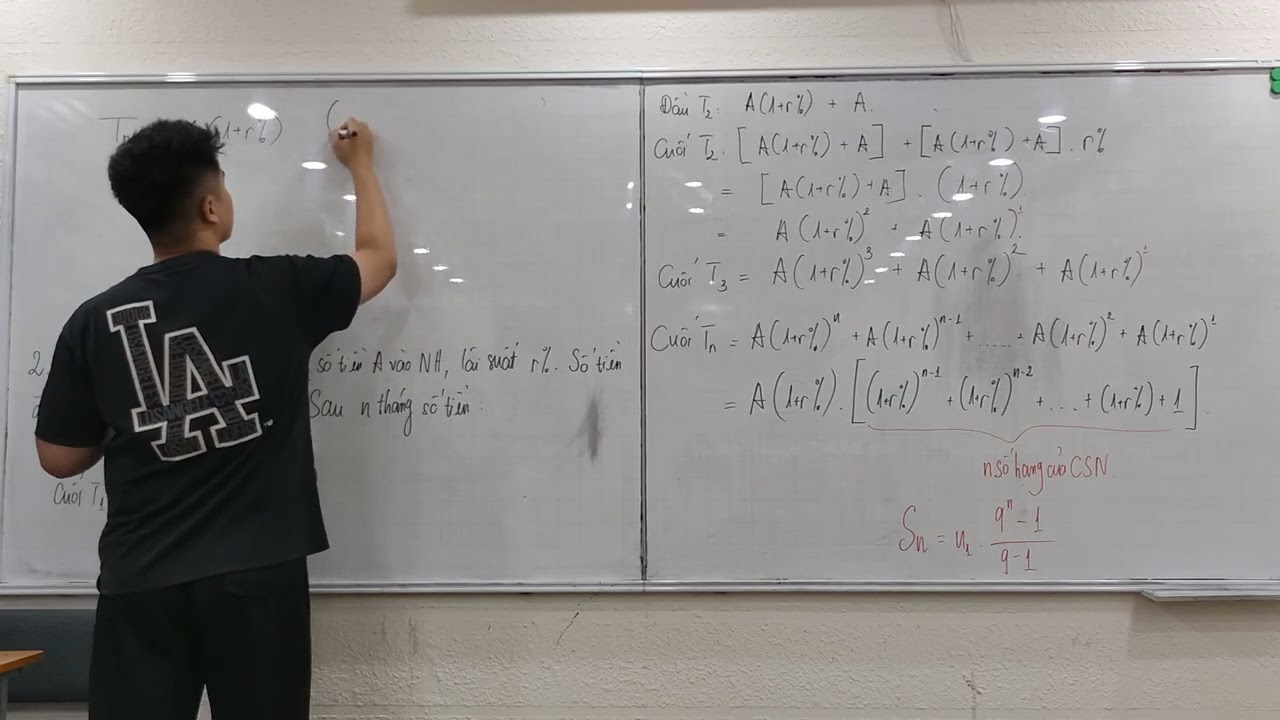 (1+r%) (
2. số tiền A vào NH, lãi suất r%. Số tiền
Sau n tháng số tiền :
Cuối T₁
LA
Đầu T₂: A(1+r%) + A.
Cuối T₂: [A(1+r%) + A] + [A(1+r%) + A] . r%
= [A(1+r%) + A] . (1+r%)
= A(1+r%)² + A(1+r%)¹.
Cuối T₃ = A(1+r%)³ + A(1+r%)² + A(1+r%)¹
Cuối Tₙ = A(1+r%)ⁿ + A(1+r%)ⁿ⁻¹ + ...... + A(1+r%)² + A(1+r%)¹
= A(1+r%) . [(1+r%)ⁿ⁻¹ + (1+r%)ⁿ⁻² + ... + (1+r%) + 1].
n số hạng của CSN.
Sₙ = u₁ . (qⁿ - 1)/(q - 1)